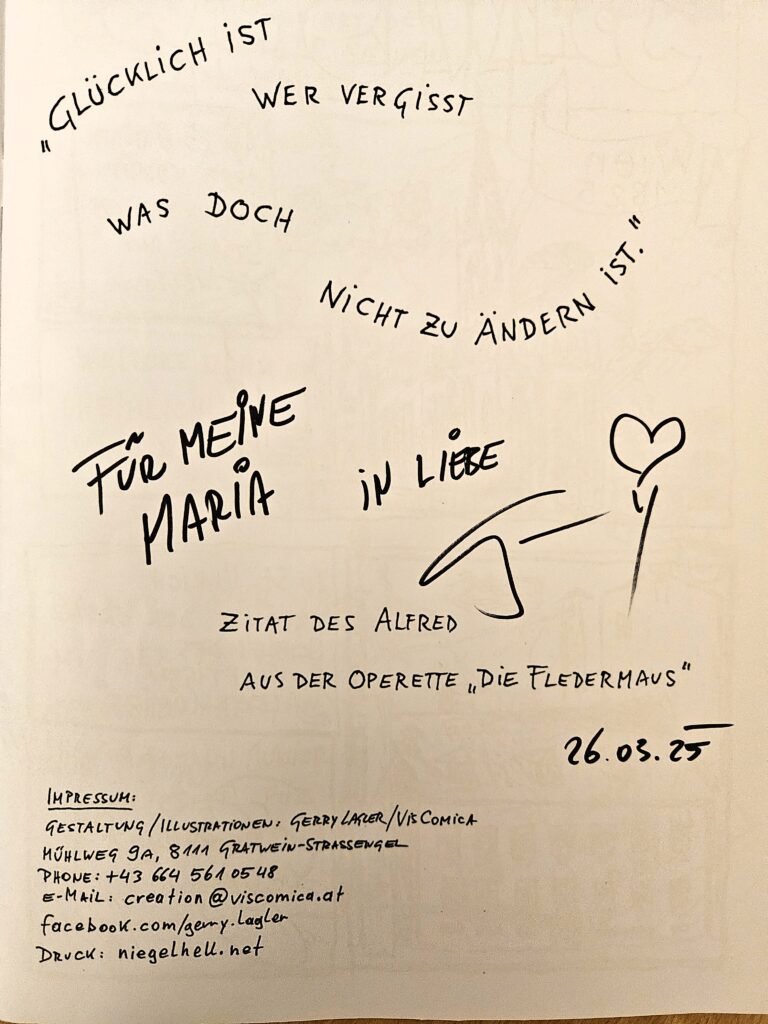 "GLÜCKLICH IST
WER VERGISST
WAS DOCH
NICHT ZU ÄNDERN IST."
FÜR MEINE
MARIA
IN LIEBE
ZITAT DES ALFRED
AUS DER OPERETTE „DIE FLEDERMAUS"
26.03.25
IMPRESSUM:
GESTALTUNG/ILLUSTRATIONEN: GERRY LAGLER/VISCOMICA
MÜHLWEG 9A, 8111 GRATWEIN-STRASSENGEL
PHONE: +43 664 561 05 48
E-MAIL: creation@viscomica.at
facebook.com/gerry.lagler
DRUCK: niegelhell.net